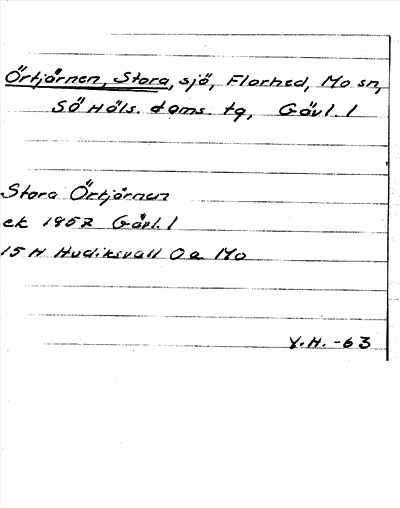 Örtjärnen, Stora, sjö, Florhed, Mo sn,
Sö Häls. doms. tg, Gävl. l
Stora Örtjärnen
ek 1957 Gävl. l
15 H Hudiksvall Oa Mo
Y.H. -63